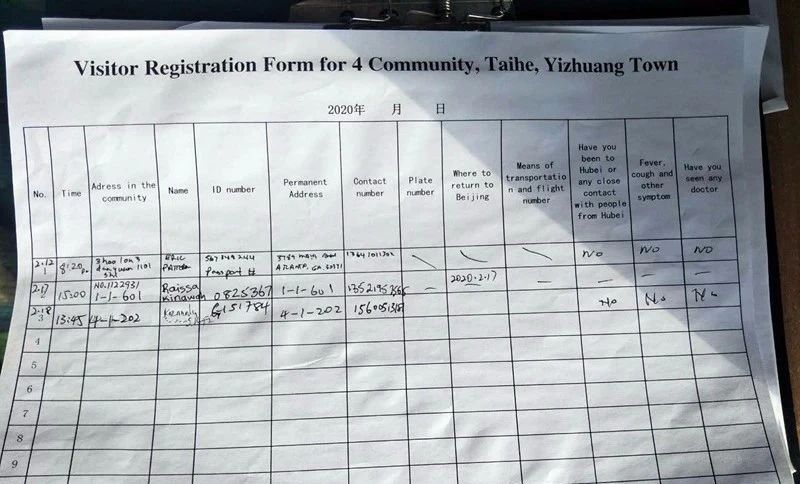 Visitor Registration Form for 4 Community, Taihe, Yizhuang Town
2020年 月 日
No.
Time
Adress in the
community
Name
ID number
Permanent
Address
Contact
number
Plate
number
Where to
return to
Beijing
Means of
transportatio
n and flight
number
Have you
been to
Hubei or
any close
contact
with people
from Hubei
Fever,
cough and
other
symptom
Have you
seen any
doctor
2.12
1
8:20
1101
ERIC
Passport #
ATLANTA, GA
No
No
No
2.17
2
15:00
NO.1122931
1-1-601
Raissa
0825367
1-1-601
—
2020.2.17
—
—
—
—
—
2.18
3
13:45
4-1-202
G151784
4-1-202
No
No
No
4
5
6
7
8
9